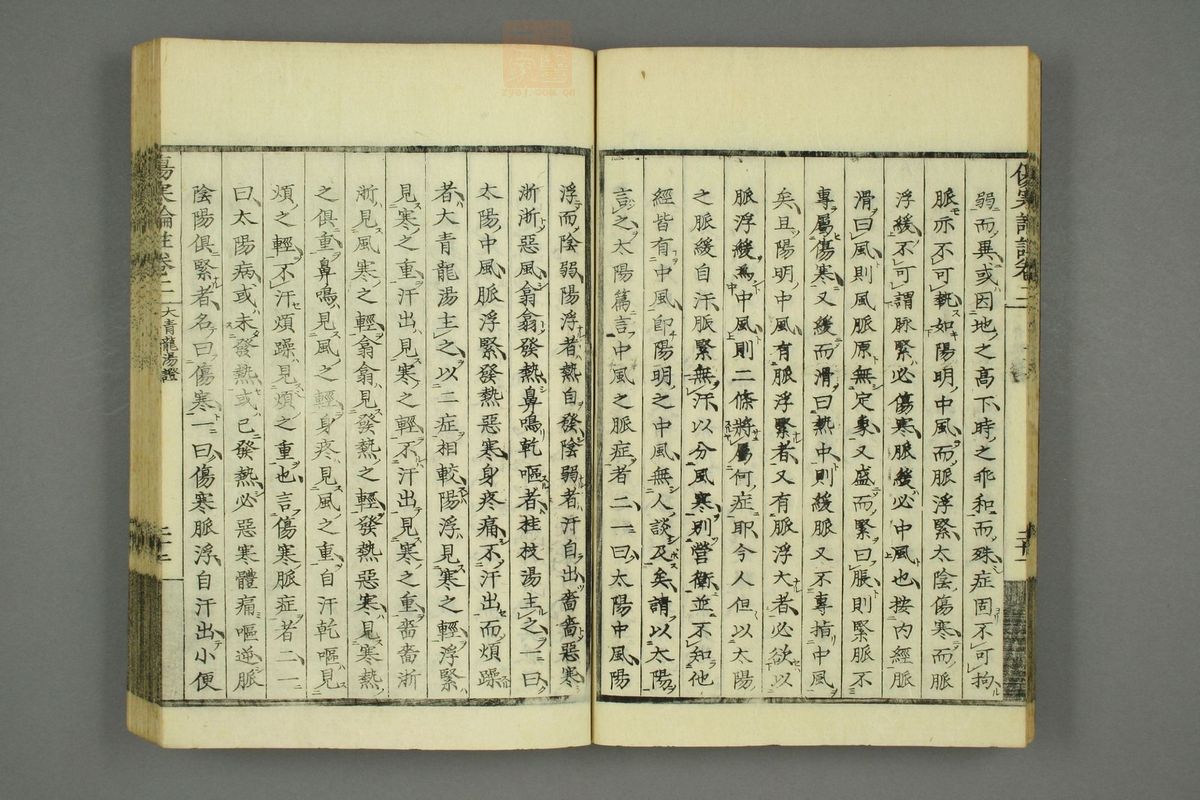 弱而異或因地之高下時之乖和而殊症固不可拘
脈亦不可執如陽明中風而脈浮緊太陰傷寒而脈
浮緩不可謂脉緊必傷寒脈緩必中風也按內經脈
滑曰風則風脈原無定象又盛而緊曰脹則緊脈不
專屬傷寒又緩而滑曰熱中則緩脈又不專指中風
矣且陽明中風有脈浮緊者又有脈浮大者必欲以
脈浮緩爲中風則二條將屬何症耶今人但以太陽
之脈緩自汗脈緊無汗以分風寒別營衛並不知他
經皆有中風即陽明之中風無人談及矣請以太陽
言之太陽篇言中風之脈症者二一曰太陽中風陽
浮而陰弱陽浮者熱自發陰弱者汗自出嗇嗇惡寒
淅淅惡風翕翕發熱鼻鳴乾嘔者桂枝湯主之一曰
太陽中風脈浮緊發熱惡寒身疼痛不汗出而煩躁
者大青龍湯主之以二症相較陽浮見寒之輕浮緊
見寒之重汗出見寒之輕不汗出見寒之重嗇嗇淅
淅見風寒之輕翕翕見發熱之輕發熱惡寒見寒熱
之俱重鼻鳴見風之輕身疼見風之重自汗乾嘔見
煩之輕不汗煩躁見煩之重也言傷寒脈症者二一
曰太陽病或未發熱或已發熱必惡寒體痛嘔逆脈
陰陽俱緊者名曰傷寒一曰傷寒脈浮自汗出小便
傷寒論註卷二 大青龍湯證
zysj.com.cn